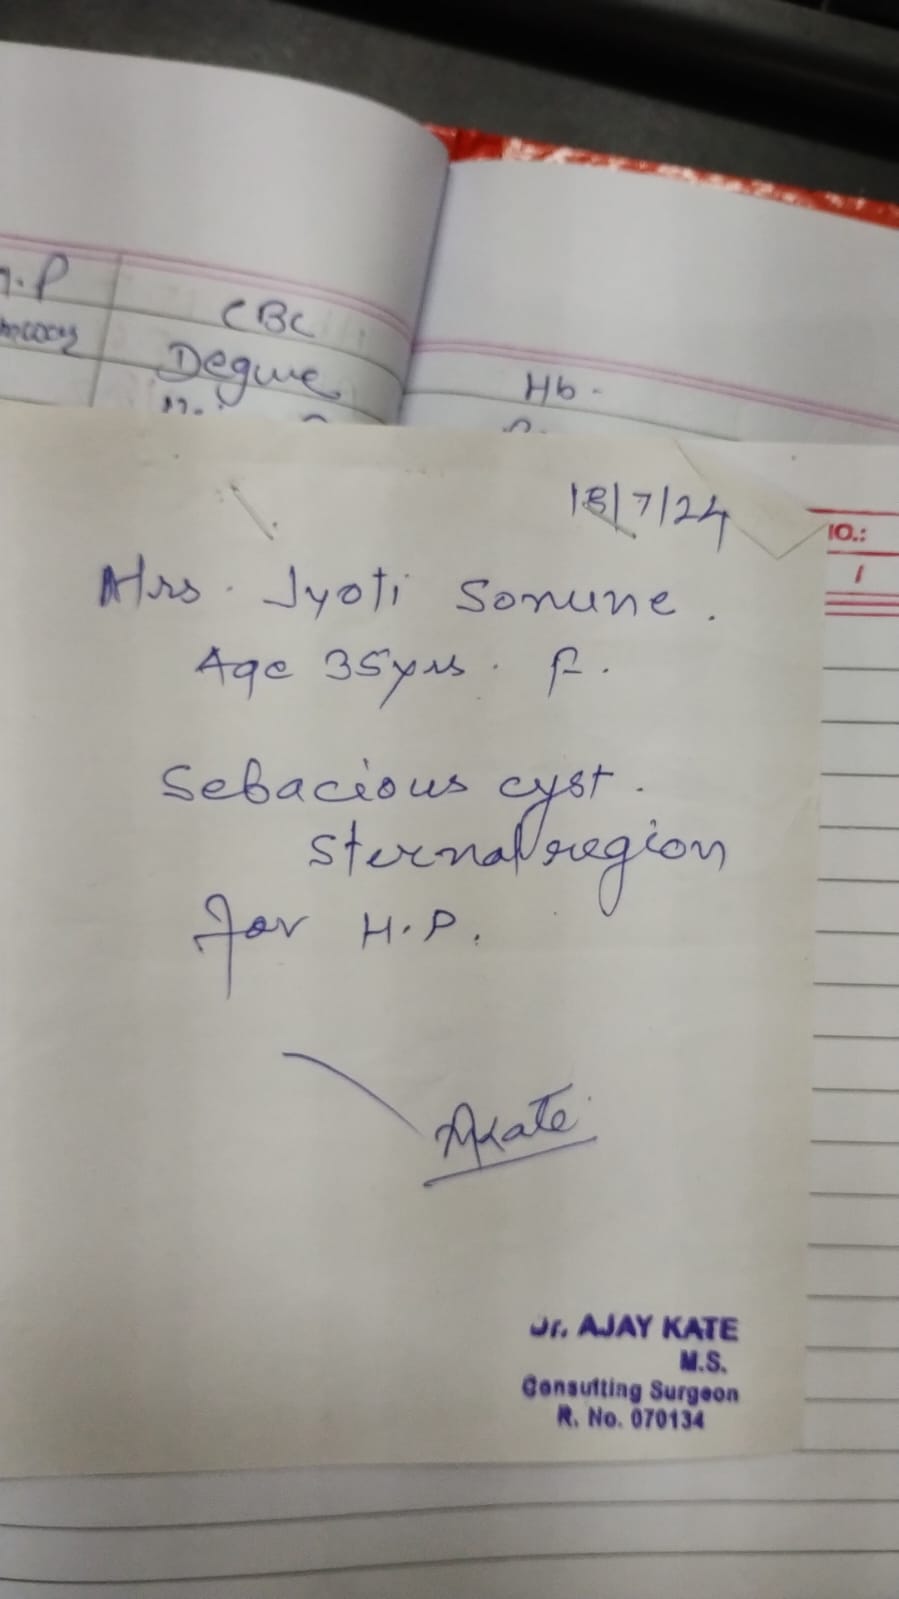 CBC
Hb -
18/7/24
IO.:
Mrs. Jyoti Sonune.
Age 35yrs. F.
Sebacious cyst.
Sternal region
for H.P.
AKate
Dr. AJAY KATE
M.S.
Consulting Surgeon
R. No. 070134